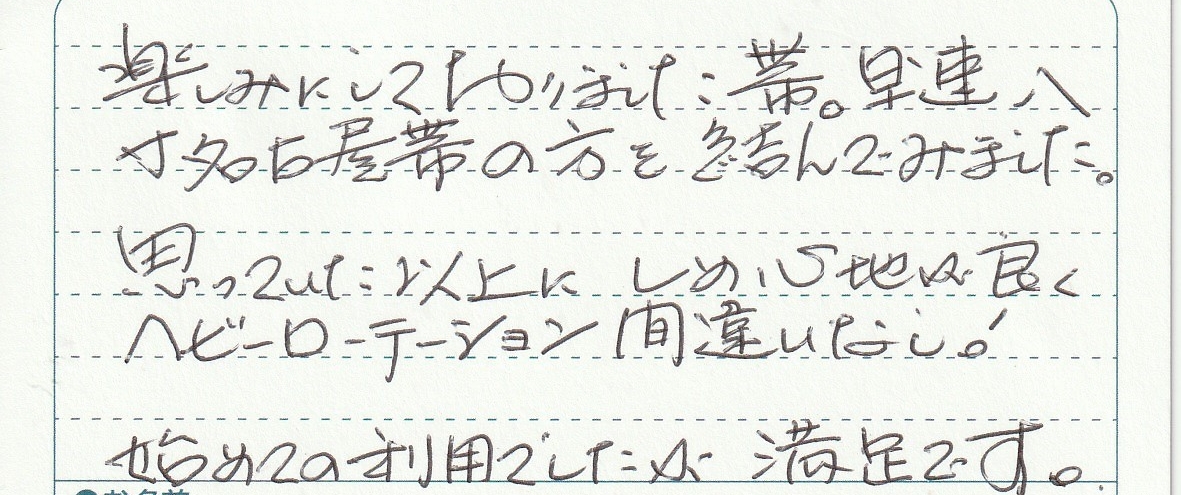 楽しみにしておりました帯。早速八
寸名古屋帯の方を結んでみました。
思っていた以上に しめ心地が良く
ヘビーローテーション間違いなし!
始めての利用でしたが 満足です。